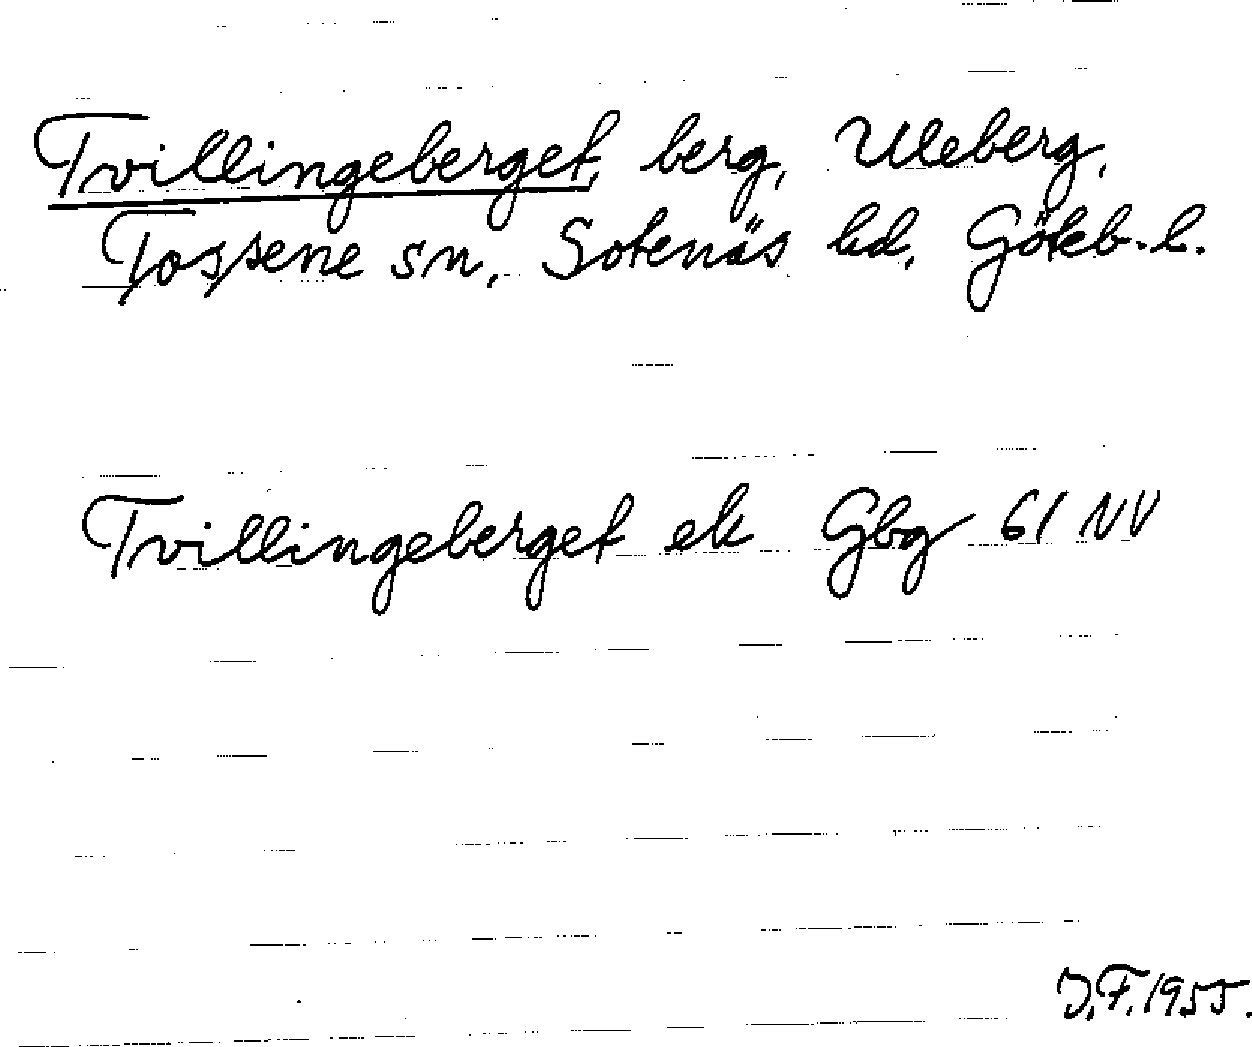 Tvillingeberget, berg, Uleberg,
Tossene sn, Sotenäs hd, Göteb. l.
Tvillingeberget ek Gbg 61 NV
J.F. 1955.